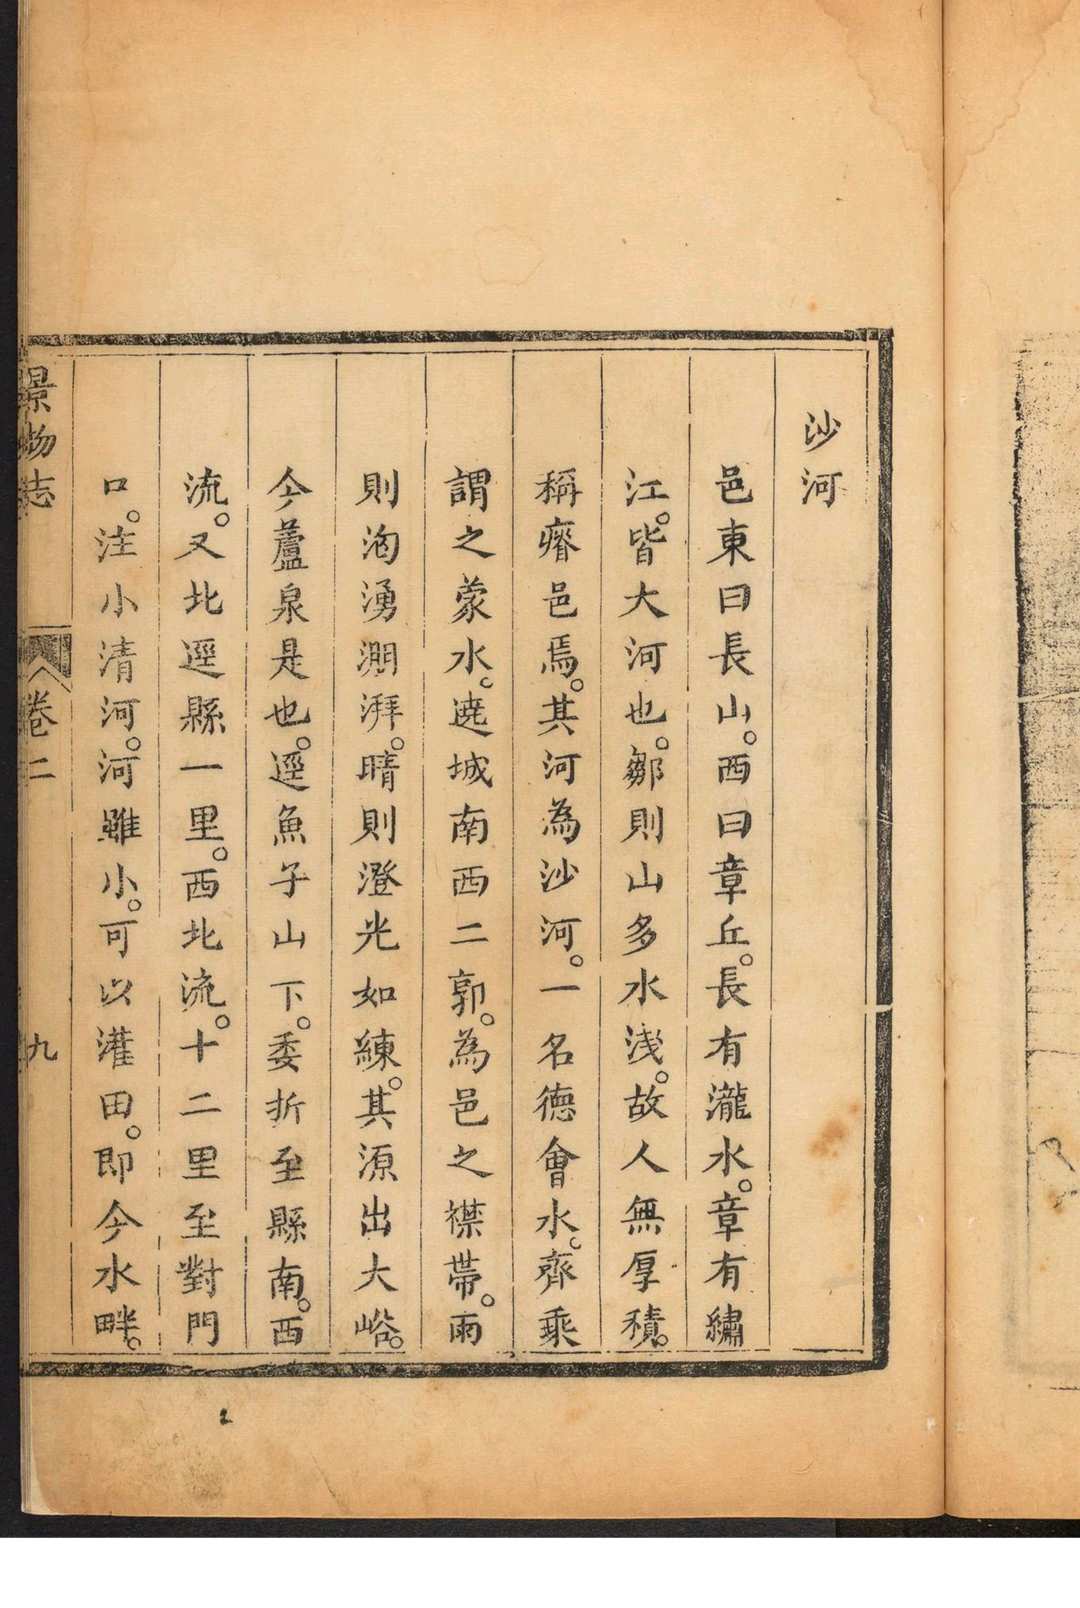 沙河
邑東曰長山。西曰章丘。長有瀧水。章有繡
江。皆大河也。鄒則山多水淺。故人無厚積。
稱瘠邑焉。其河為沙河。一名德會水。齊乘
謂之蒙水。遶城南西二郭。為邑之襟帶。雨
則洶湧澗湃。晴則澄光如練。其源出大峪。
今蘆泉是也。逕魚子山下。委折至縣南。西
流。又北逕縣一里。西北流。十二里至對門
口。注小清河。河雖小。可以灌田。即今水畔。
景物志 卷二 九